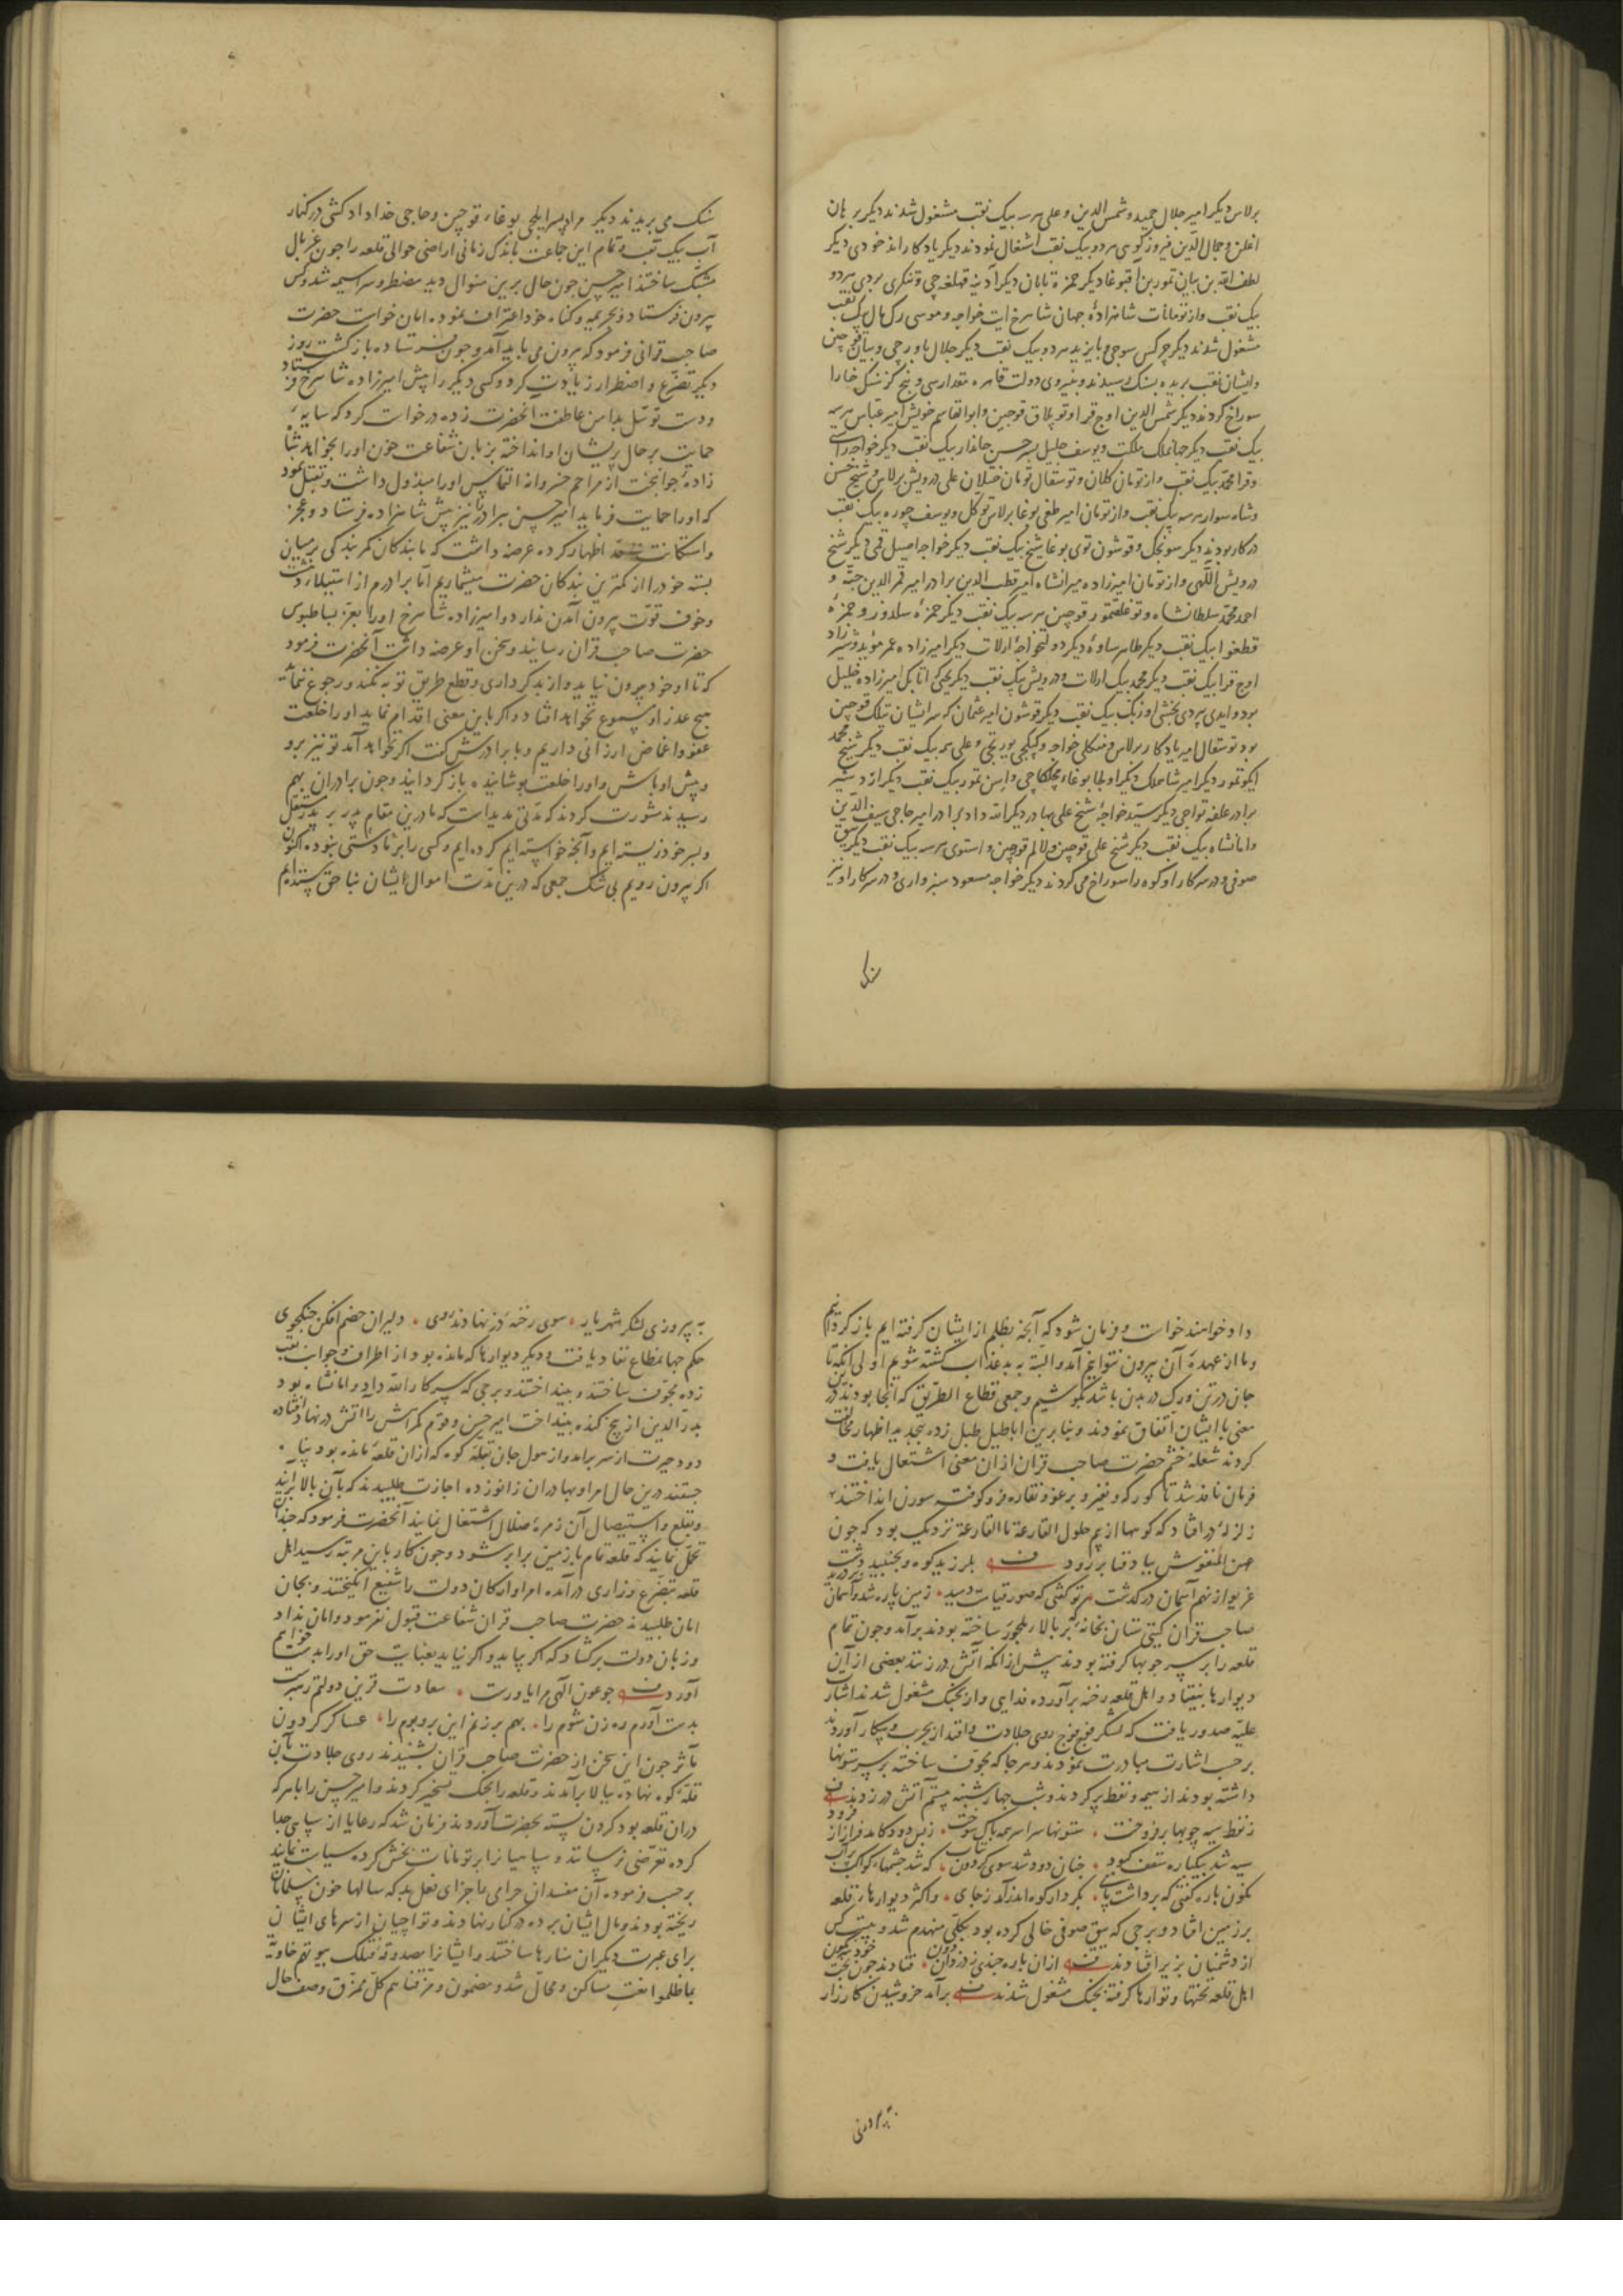 برلاس دیکر امیر جلال حمید و شمس الدین و علی هر سه بیک نقب مشغول شدند دیکر برهان
اغلن و جمال الدین فیروز کوهی هر دو بیک نقب اشتغال نمودند دیکر یادکار اندخودی دیکر
لطف الله بن بیان تمور بن آقبوغا دیکر حمزه تابان دیکر آدینه قهلغه چی و تنکری بردی هر دو
بیک نقب و از تومانات شاهزاده جهان شاهرخ ایت خواجه و موسی رک مال بیک نقب
مشغول شدند دیکر چرکس سوجی و بایزید هر دو بیک نقب دیکر جلال باورچی و بیان قوچین
و ایشان نقب بریده بسنک رسیدند و بنیروی دولت قاهره مقدار سی و پنج کز سنک خارا
سوراخ کردند دیکر شمس الدین اوج قرا و توبلاق قوجین و ابو القاسم خویش امیر عباس هر سه
بیک نقب دیکر جهانملک ملکت و یوسف جلیل پسر حسن جاندار بیک نقب دیکر خواجه راستی
و قرا محمد بیک نقب و از تومان کلان و توسقال تومان ختلان علی درویش برلاس و شیخ حسن
و شاه سوار هر سه بیک نقب و از تومان امیر طغی بوغا برلاس توکل و یوسف چوره بیک نقب
در کار بودند دیکر سونجک و قوشون توی بوغا شیخ بیک نقب دیکر خواجه اصیل قمی دیکر شیخ
درویش اللهی و از تومان امیرزاده میرانشاه امیر قطب الدین برادر امیر قمر الدین جته و
احمد محمد سلطانشاه و توغلقتمور قوچین هر سه بیک نقب دیکر حمزه سلدوز و حمزه
قطغوا بیک نقب دیکر طاهر ساوه دیکر دولتخواجه ارلات دیکر امیرزاده عمر مؤید و شیرزاد
اوج قرا بیک نقب دیکر محمد بیک ارلات و درویش بیک نقب دیکر یحیی که اتابک امیرزاده خلیل
بود و ایدی بردی بخشی اوزبک بیک نقب دیکر قوشون امیر عثمان که سر ایشان تیلک قوچین
بود توسقال امیر یادکار برلاس و منکلی خواجه و کپکجی یورتچی و علی سه بیک نقب دیکر شیخ محمد
ایکوتمور دیکر امیر شاهملک دیکر اولجا بوغاء و ایسن تمور بیک نقب دیکر اردشیر
برادر علفه تواجی دیکر سید خواجه شیخ علی بهادر دیکر الله داد برادر امیر حاجی سیف الدین
و امانشاه بیک نقب دیکر شیخ علی قوجین و لالم قوجین و استوی هر سه بیک نقب دیکر بیق
صوفی و در سرکار او کوه را سوراخ می کردند دیکر خواجه مسعود سبزواری و در سرکار او نیز
سنک
سنک می بریدند دیکر مراد پسر ایلچی بوغاء قوجین و حاجی خداداد کشی در کنار
آب بیک نقب و تمام این جماعت باندک زمانی اراضی حوالی قلعه را جون غربال
مشبک ساختند امیر حسین جون حال برین منوال دید مضطر و سراسیمه شد و کس
بیرون فرستاد و بجریمه و کناه خود اعتراف نمود. امان خواست حضرت
صاحب قرانی فرمود که بیرون می باید آمد و جون فرستاده باز کشت روز
دیکر تضرع و اضطرار زیادت کرد و کسی دیکر را پیش امیرزاده شاهرخ فرستاد
و دست توسل بدامن عاطفت آنحضرت زده درخواست کرد که سایه
حمایت بر حال پریشان او انداخته بزبان شفاعت خون او را بخواهد شاه
زاده جوانبخت از مراحم خسروانه التماس او را مبذول داشت و تقبل نمود
که او را حمایت فرماید امیر حسین برادر را نیز پیش شاهزاده فرستاد و عجز
و استکانت اظهار کرده عرضه داشت که ما بندکان کمر بندکی بر میان
بسته خود را از کمترین بندکان حضرت میشماریم اما برادرم از استیلاء دهشت
و خوف قوت بیرون آمدن ندارد و امیرزاده شاهرخ او را بعز بساطبوس
حضرت صاحب قران رسانید و سخن او عرضه داشت آنحضرت فرمود
که تا او خود بیرون نیاید و از بد کرداری و قطع طریق توبه نکند و رجوع ننماید
هیچ عذر او مسموع نخواهد افتاد و اکر باین معنی اقدام نماید او را خلعت
عفو و اغماض ارزانی داریم و با برادرش کفت اکر نخواهد آمد تو نیز برو
و پیش او باش و او را خلعت پوشانیده باز کردانید و جون برادران بهم
رسیدند مشورت کردند که مدتی مدیداست که ما درین مقام پدر بر پدر مستقل
و بسر خود زیسته ایم و آنچه خواسته ایم کرده ایم و کسی را بر ما دستی نبوده اکنون
اکر بیرون رویم بی شک جمعی که درین مدت اموال ایشان بناحق ستده ایم
داد خواهند خواست و فرمان شود که آنچه بظلم از ایشان کرفته ایم باز کردانیم
و ما از عهده آن بیرون نتوانیم آمد و البته به بد عذاب کشته شویم اولی آنکه تا
جان در تن و رک در بدن باشد بکوشیم و جمعی قطاع الطریق که آنجا بودند در این
معنی با ایشان اتفاق نمودند و بنا برین اباطیل طبل زده بتجدید اظهار مخالفت
کردند شعله خشم حضرت صاحب قران ازان معنی اشتعال یافت و
فرمان نافذ شد تا کورکه و نفیر و برغو و نقاره فرو کوفته سورن انداختند
زلزله در افتاد که کوهها از بیم حلول القارعة ما القارعة نزدیک بود که جون
عهن المنفوش بباد فنا بر رود بلرزید کوه و بجنبید دشت
غریو از نهم آسمان در کذشت . تو کفتی که صور قیامت دمید . زمین پاره شد و آسمان بردرید
صاحب قران کیتی ستان بخانه که بر بالاء ملجور ساخته بودند برآمد و جون تمام
قلعه را بر سر جوبها کرفته بودند پیش ازانکه آتش در زنند بعضی از آن
دیوارها بیفتاد و اهل قلعه رخنه برآورده فدایی وار بجنک مشغول شدند اشارت
علیه صدور یافت که لشکر فوج فوج روی جلادت و اقتدار بحرب و پیکار آوردند
بر حسب اشارت مبادرت نمودند و هر جا که مجوف ساخته بر سر ستونها
داشته بودند از هیمه و نفط پر کردند و شب جهارشنبه بیستم آتش در زدند
ز نفط سیه چوبها بر فروخت . ستونها سراسر همه پاک سوخت . ز بس دود کامد فراز از فرود
سیه شد بیکباره سقف کبود . جنان دود شد سوی کردون شتاب . که شد چشمهاء کواکب پر آب
نکون باره کفتی که برداشت پای . بکردار کوه اندر آمد ز جای . و اکثر دیوارهاء قلعه
بر زمین افتاد و برجی که بیق صوفی خالی کرده بود بکلی منهدم شد و بیست کس
از دشمنان بزیر افتادند ازان باره جندی ز دزدان دون . فتادند جون بخت خود سرنکون
اهل قلعه تختها و تورها کرفته بجنک مشغول شدند برآمد خروشیدن کارزار
به پیروزی لشکر شهریار . سوی رخنه دز نهادند روی . دلیران خصم افکن جنکجوی
حکم جهانمطاع نفاذ یافت و دیکر دیوارها که مانده بود از اطراف و جوانب نقب
زده مجوف ساختند و بینداختند و برجی که سرکار الله داد و امانشاه بود
بدر الدین از بیخ کنده بینداخت امیر حسن و قوم کمراهش را آتش در نهاد افتاده
دود حیرت از سر برآمد و از هول جان بقله کوه که ازان قلعه مانده بود پناه
جستند درین حال امرا و بهادران زانو زده اجازت طلبیدند که بآن بالا برآیند
و بقلع و استیصال آن زمره ضلال اشتغال نمایند آنحضرت فرمود که جندان
تحمل نمایند که قلعه تمام با زمین برابر شود و جون کار باین مرتبه رسید اهل
قلعه بتضرع و زاری درآمده امرا و ارکان دولت را شفیع انکیختند و بجان
امان طلبیدند حضرت صاحب قران شفاعت قبول نفرمود و امان نداد
و زبان دولت برکشاد که اکر بیاید و اکر نیاید بعنایت حق او را بدست خواهیم
آورد جو عون الهی مرا یاورست . سعادت قرین دولتم رهبرست
بدست آورم ره زن شوم را . بهم بر زنم این بر و بوم را . عساکر کردون
مآثر جون این سخن از حضرت صاحب قران بشنیدند روی جلادت بآن
قله کوه نهاده ببالا برآمدند و قلعه را بجنک تسخیر کردند و امیر حسین را با هر که
دران قلعه بود کردن بسته بحضرت آوردند فرمان شد که رعایا از سپاهی جدا
کرده تعرضی نرسانند و سپاهیانرا بر تومانات بخش کرده سیاست نمایند
بر حسب فرموده آن مفسدان حرامی با جزای فعل بد که سالها خون مسلمانان
ریخته بودند و مال ایشان برده در کنار نهادند و تواجیان از سرهای ایشان
برای عبرت دیکران منارها ساختند و ایشانرا مصدوقه فتلک بیوتهم خاویة
بما ظلموا نعت مساکن و محال شد و مضمون و مزقناهم کل ممزق وصف حال